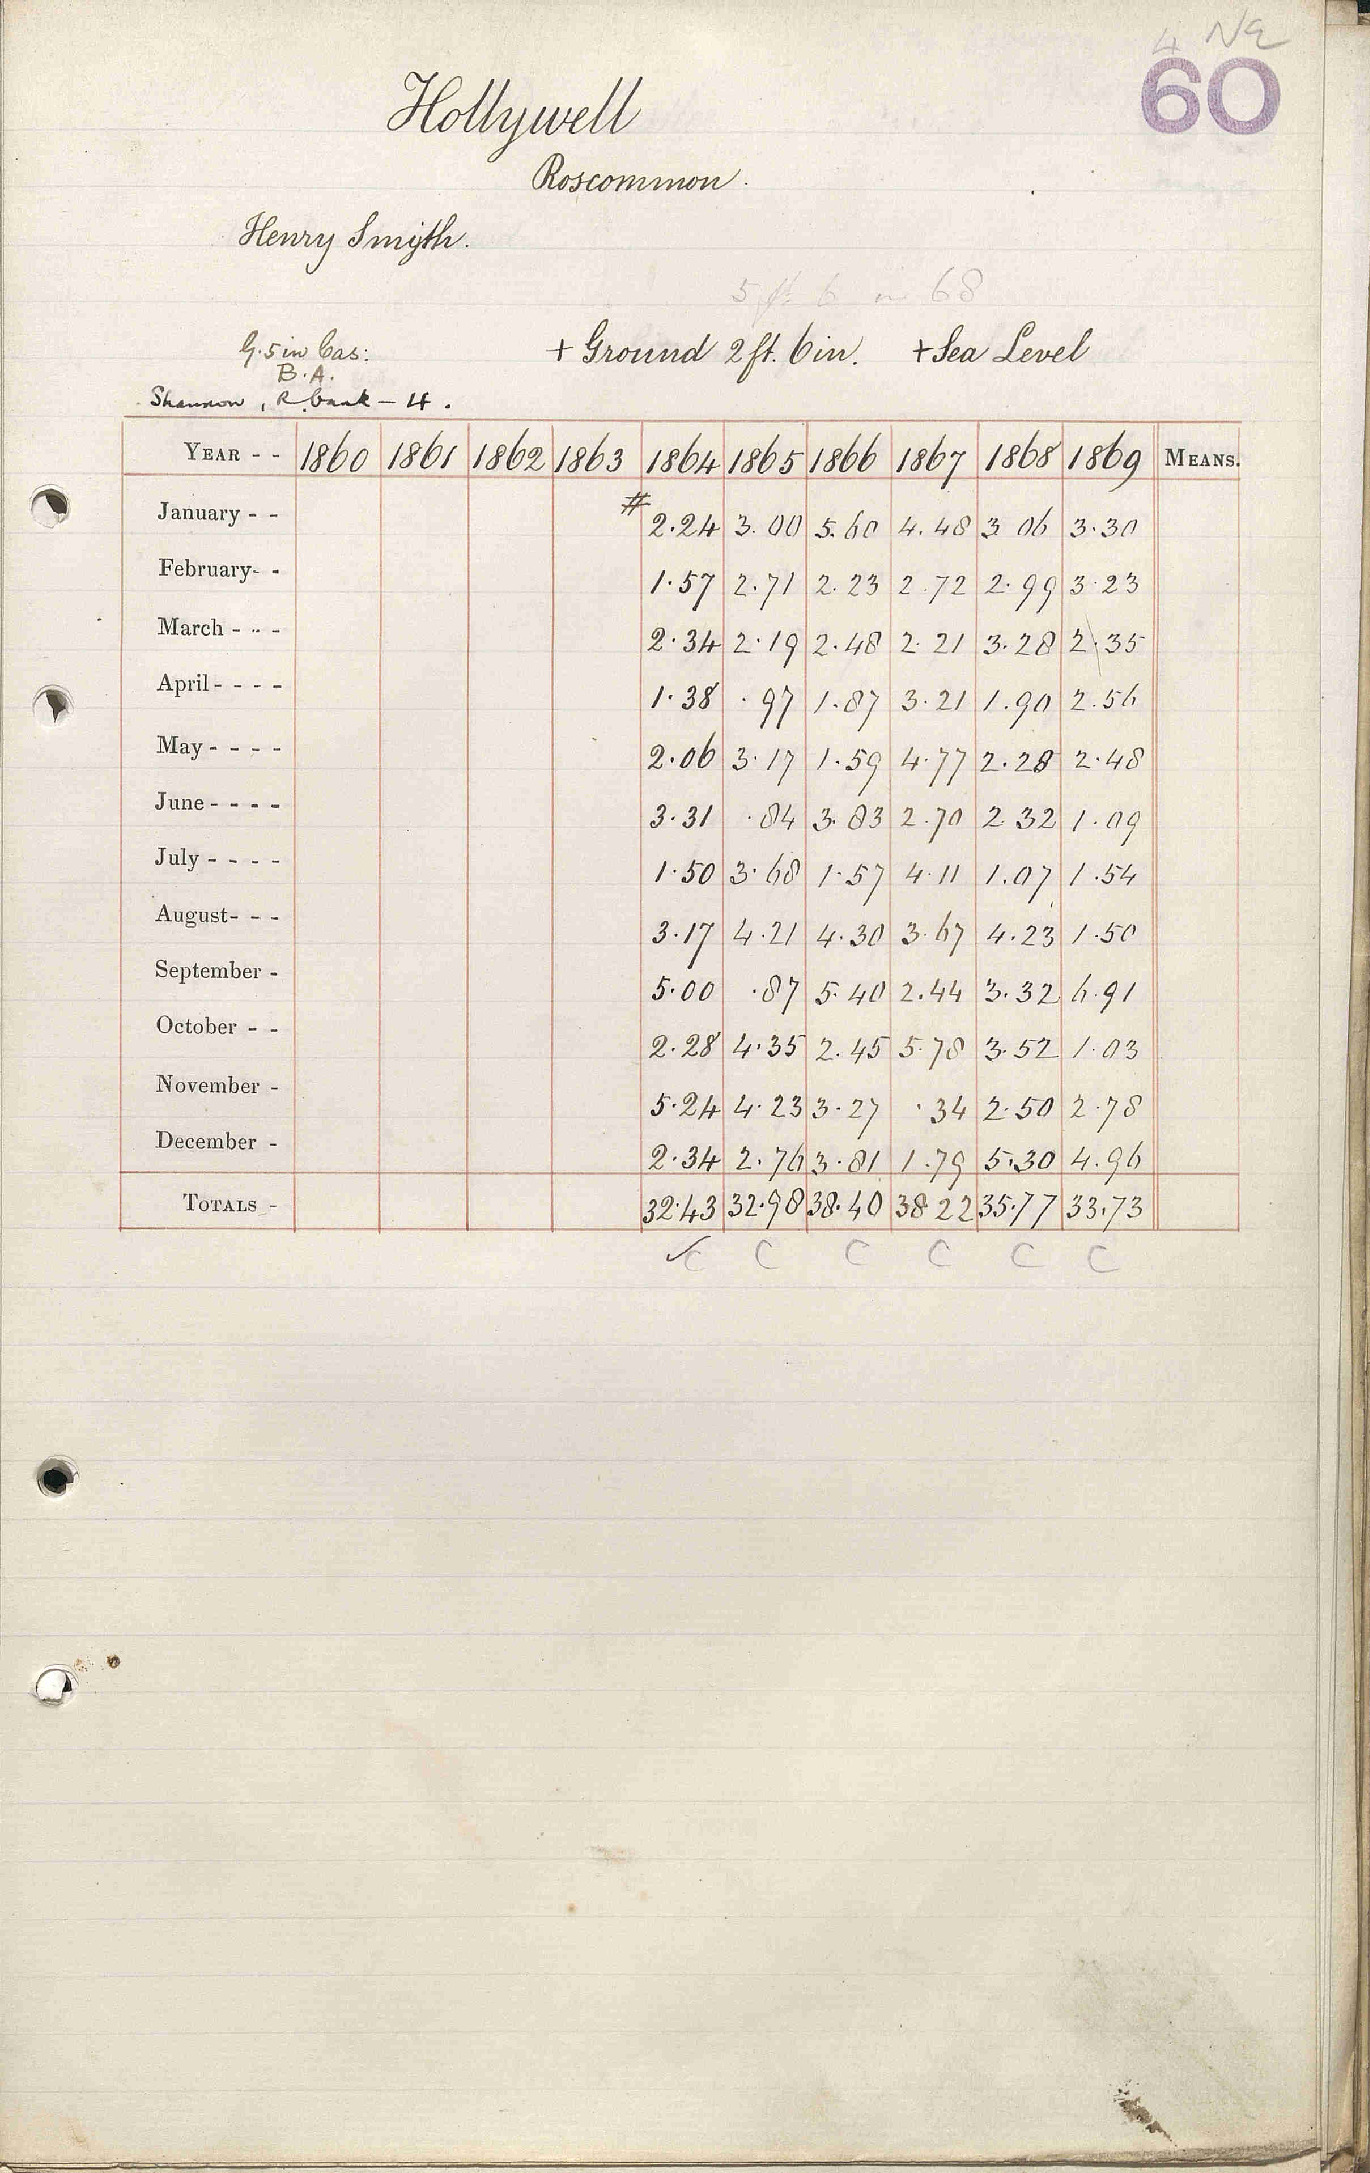 4 NE
60
Hollywell
Roscommon.
Henry Smyth.
5 ft 6 in 68
G. 5 in Cas: + Ground 2 ft. 6 in. + Sea Level
B.A.
Shannon, R. bank - 4.
YEAR - - 1860 1861 1862 1863 1864 1865 1866 1867 1868 1869 MEANS.
January - - # 2.24 3.00 5.60 4.48 3 06 3.30
February- - 1.57 2.71 2.23 2.72 2.99 3.23
March - - - 2.34 2.19 2.48 2.21 3.28 2.35
April - - - - 1.38 .97 1.87 3.21 1.90 2.56
May - - - - 2.06 3.17 1.59 4.77 2.28 2.48
June - - - - 3.31 .84 3.83 2.70 2.32 1.09
July - - - - 1.50 3.68 1.57 4.11 1.07 1.54
August- - - 3.17 4.21 4.30 3.67 4.23 1.50
September - 5.00 .87 5.40 2.44 3.32 6.91
October - - 2.28 4.35 2.45 5.78 3.52 1.03
November - 5.24 4.23 3.27 .34 2.50 2.78
December - 2.34 2.76 3.81 1.79 5.30 4.96
TOTALS - 32.43 32.98 38.40 38.22 35.77 33.73
✓C C C C C C